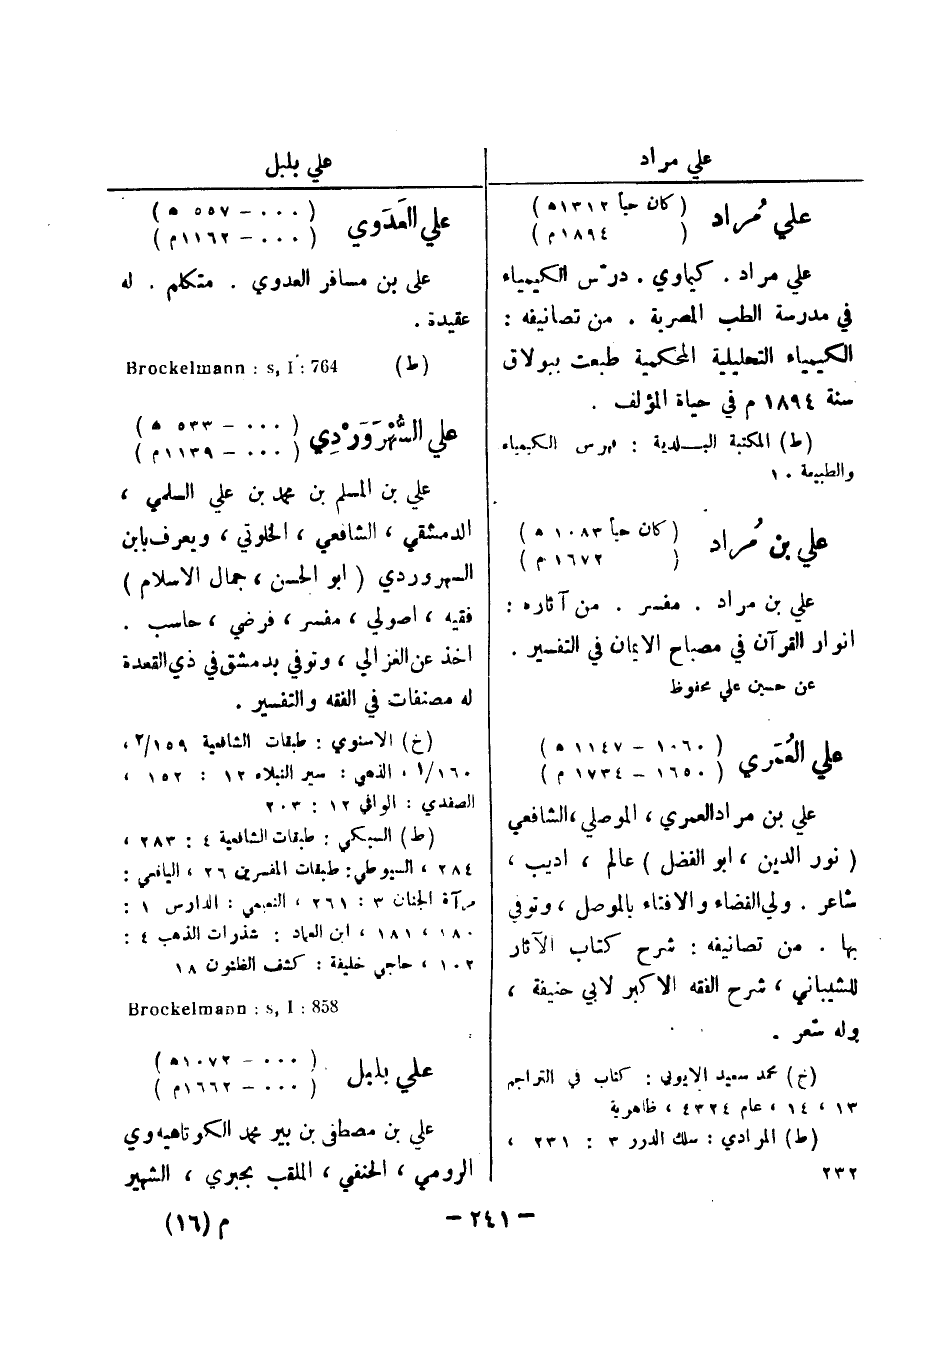 علي مراد
علي مُراد
( كان حياً ١٣١٢ﻫ )
( ١٨٩٤م )
علي مراد . كيماوي . درّس الكيمياء
في مدرسة الطب المصرية . من تصانيفه :
الكيمياء التحليلية المحكمية طبعت ببولاق
سنة ١٨٩٤ م في حياة المؤلف .
(ط) المكتبة البلدية : فهرس الكيمياء
والطبيعة ١٠
علي بن مُراد
( كان حياً ١٠٨٣ ﻫ )
( ١٦٧٢ م )
علي بن مراد . مفسر . من آثاره :
انوار القرآن في مصباح الايمان في التفسير .
عن حسين علي محفوظ
علي العُمَري
( ١٠٦٠ – ١١٤٧ ﻫ )
( ١٦٥٠ – ١٧٣٤ م )
علي بن مراد العمري ، الموصلي ، الشافعي
( نور الدين ، ابو الفضل ) عالم ، اديب ،
شاعر . ولي القضاء والافتاء بالموصل ، وتوفي
بها . من تصانيفه : شرح كتاب الآثار
للشيباني ، شرح الفقه الاكبر لابي حنيفة ،
وله شعر .
(خ) محمد سعيد الايوبي : كتاب في التراجم
١٣ ، ١٤ ، عام ٤٣٢٤ ، ظاهرية
(ط) المرادي : سلك الدرر ٣ : ٢٣١ ،
٢٣٢
علي بلبل
علي العَدَوي
( ٠٠٠ – ٥٥٧ ﻫ )
( ٠٠٠ – ١١٦٢م )
علي بن مسافر العدوي . متكلم . له
عقيدة .
(ط) Brockelmann : s, I : 764
علي السُّهْرَوَرْدِي
( ٠٠٠ – ٥٣٣ ﻫ )
( ٠٠٠ – ١١٣٩م )
علي بن المسلم بن محمد بن علي السلمي ،
الدمشقي ، الشافعي ، الخلوتي ، ويعرف بابن
السهروردي ( ابو الحسن ، جمال الاسلام )
فقيه ، اصولي ، مفسر ، فرضي ، حاسب .
اخذ عن الغزالي ، وتوفي بدمشق في ذي القعدة
له مصنفات في الفقه والتفسير .
(خ) الاسنوي : طبقات الشافعية ٢/١٥٩ ،
١/١٦٠ ، الذهبي : سير النبلاء ١٢ : ١٥٢ ،
الصفدي : الوافي ١٢ : ٢٠٣
(ط) السبكي : طبقات الشافعية ٤ : ٢٨٣ ،
٢٨٤ ، السيوطي : طبقات المفسرين ٢٦ ، اليافعي :
مرآة الجنان ٣ : ٢٦١ ، النعيمي : الدارس ١ :
١٨٠ ، ١٨١ ، ابن العماد : شذرات الذهب ٤ :
١٠٢ ، حاجي خليفة : كشف الظنون ١٨
Brockelmann : s, I : 858
علي بلبل
( ٠٠٠ – ١٠٧٢ﻫ )
( ٠٠٠ – ١٦٦٢م )
علي بن مصطفى بن بير محمد الكوتاهيه وي
الرومي ، الحنفي ، الملقب بجبري ، الشهير
– ٢٤١ –
م (١٦)